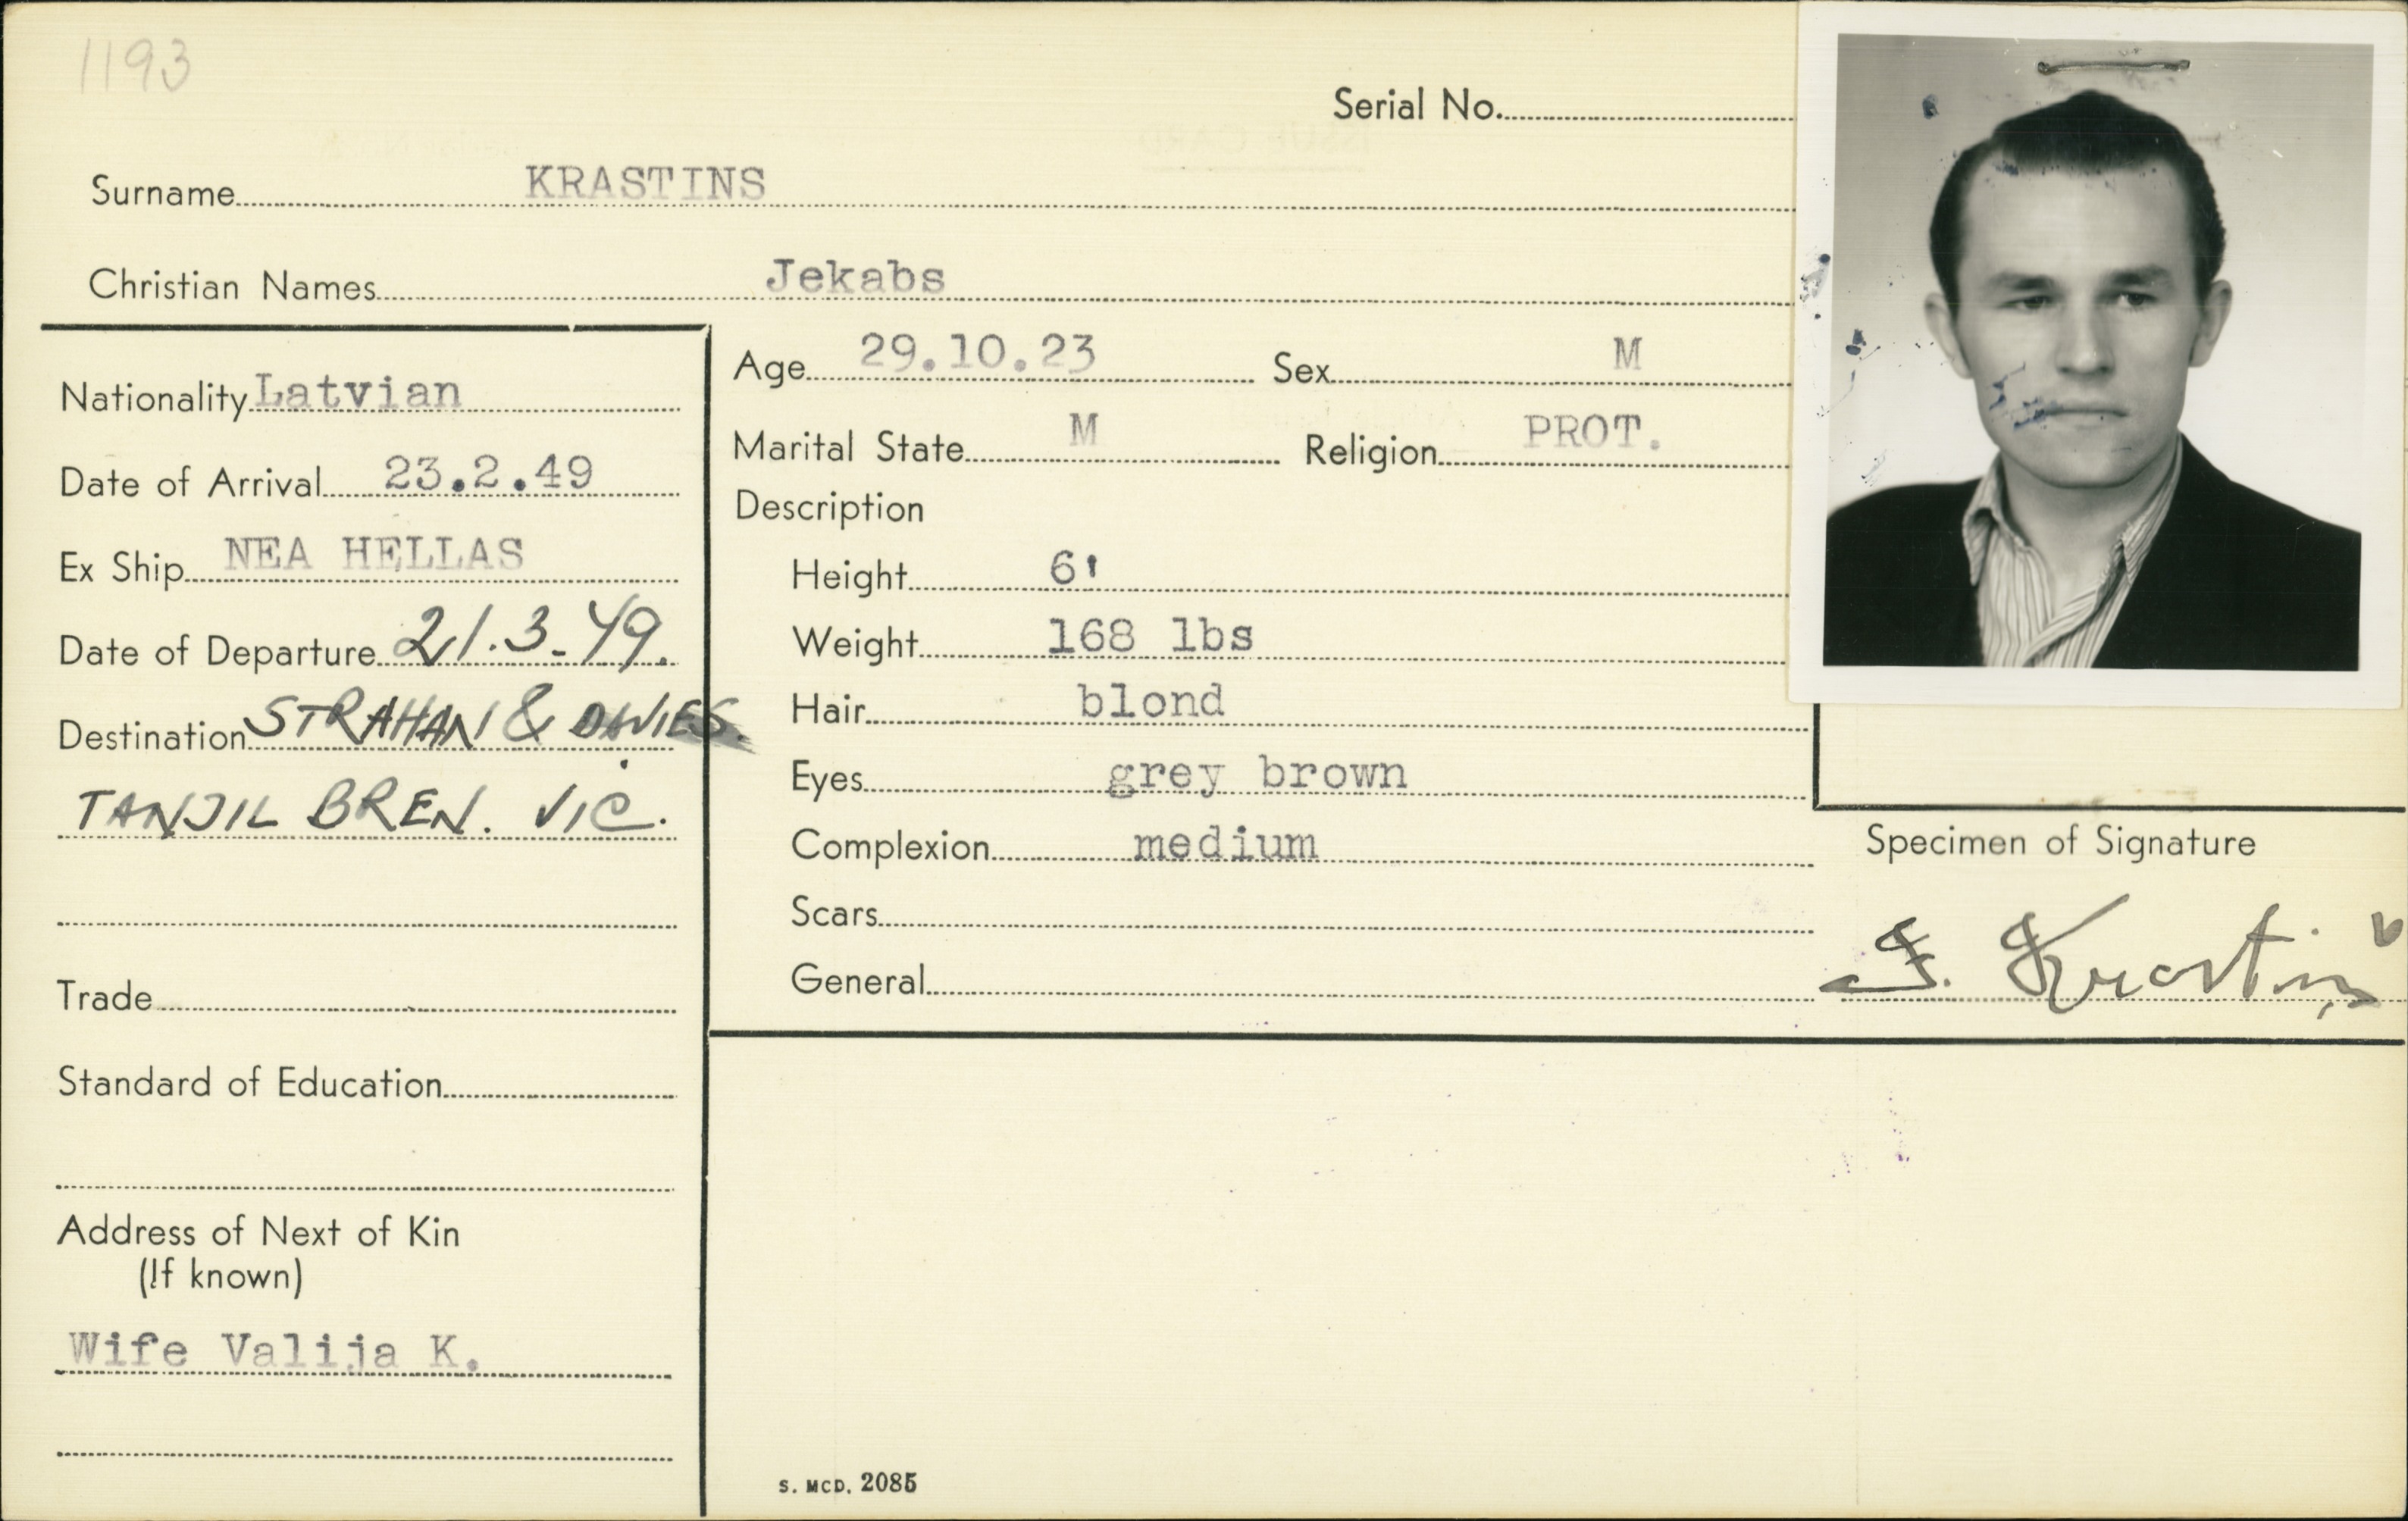 1193
Serial No.
Surname KRASTINS
Christian Names Jekabs
Nationality Latvian
Date of Arrival 23.2.49
Ex Ship NEA HELLAS
Date of Departure 21.3-49.
Destination STRAHAN & DAVIES.
TANJIL BREN. VIC.
Trade
Standard of Education
Address of Next of Kin
(If known)
Wife Valija K.
Age 29.10.23 Sex M
Marital State M Religion PROT.
Description
Height 6'
Weight 168 lbs
Hair blond
Eyes grey brown
Complexion medium
Scars
General
Specimen of Signature
J. Krastiņš
S. MCD. 2085